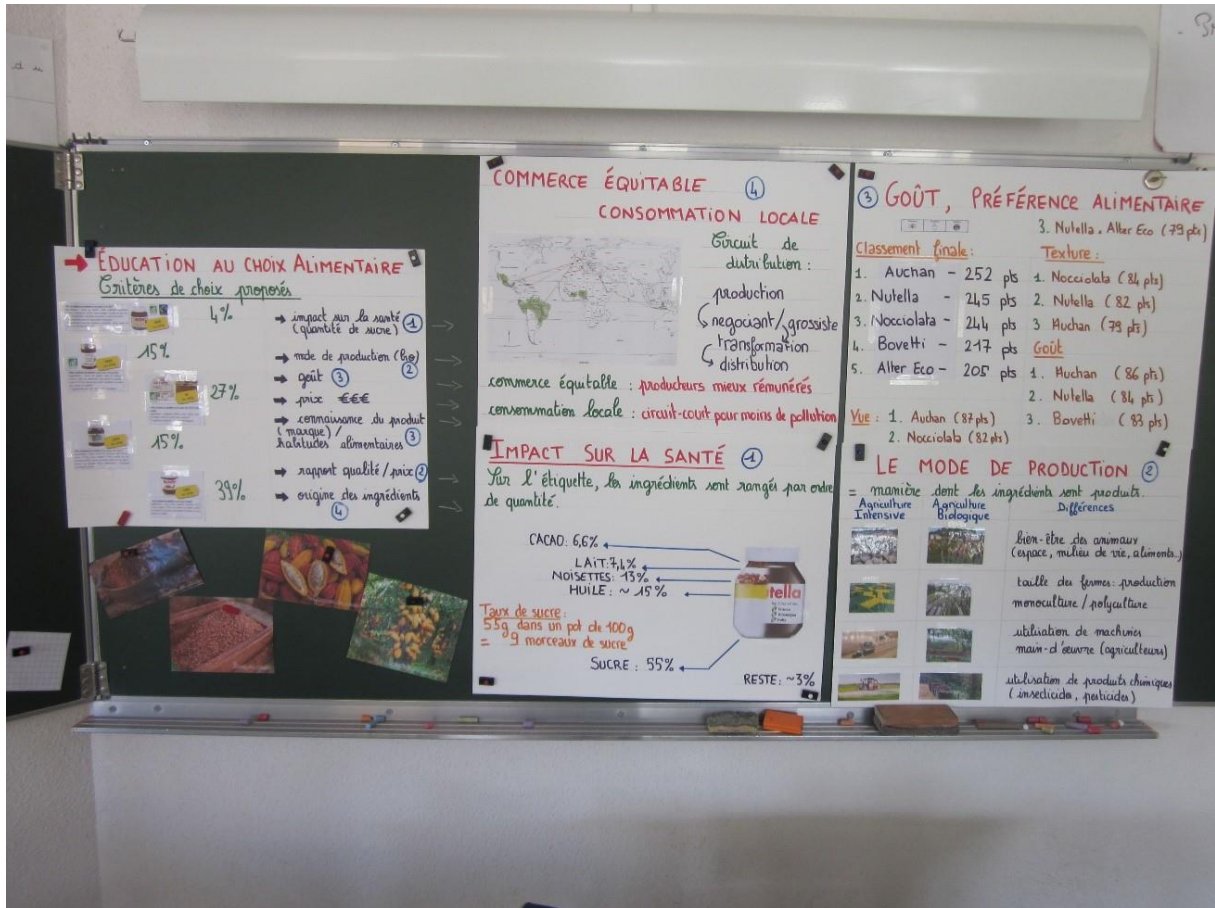 → ÉDUCATION AU CHOIX ALIMENTAIRE
Critères de choix proposés
4%
15%
27%
15%
39%
→ impact sur la santé ①
(quantité de sucre)
→ mode de production (bio) ②
→ goût ③
→ prix €€€
→ connaissance du produit
(marque) /
habitudes alimentaires ③
→ rapport qualité/prix ②
→ origine des ingrédients
④
COMMERCE ÉQUITABLE ④
CONSOMMATION LOCALE
Circuit de
distribution :
production
negociant/grossiste
transformation
distribution
commerce équitable : producteurs mieux rémunérés
consommation locale : circuit-court pour moins de pollution
IMPACT SUR LA SANTÉ ①
Sur l'étiquette, les ingrédients sont rangés par ordre
de quantité.
CACAO: 6,6%
LAIT: 7,4%
NOISETTES: 13%
HUILE: ~ 15%
nutella
Taux de sucre :
55g dans un pot de 100g
= 9 morceaux de sucre
SUCRE : 55%
RESTE: ~3%
③ GOÛT, PRÉFÉRENCE ALIMENTAIRE
3. Nutella. Alter Eco (79 pts)
Classement finale :
1. Auchan - 252 pts
2. Nutella - 245 pts
3. Nocciolata - 244 pts
4. Bovetti - 217 pts
5. Alter Eco - 205 pts
Vue : 1. Auchan (87 pts)
2. Nocciolata (82 pts)
Texture :
1. Nocciolata (84 pts)
2. Nutella (82 pts)
3 Auchan (79 pts)
Goût
1. Auchan (86 pts)
2. Nutella (84 pts)
3. Bovetti (83 pts)
LE MODE DE PRODUCTION ②
= manière dont les ingrédients sont produits.
Agriculture
Intensive
Agriculture
Biologique
Différences
bien-être des animaux
(espace, milieu de vie, aliments..)
taille des fermes: production
monoculture / polyculture
utilisation de machines
main-d'œuvre (agriculteurs)
utilisation de produits chimiques
(insecticide, pesticides)